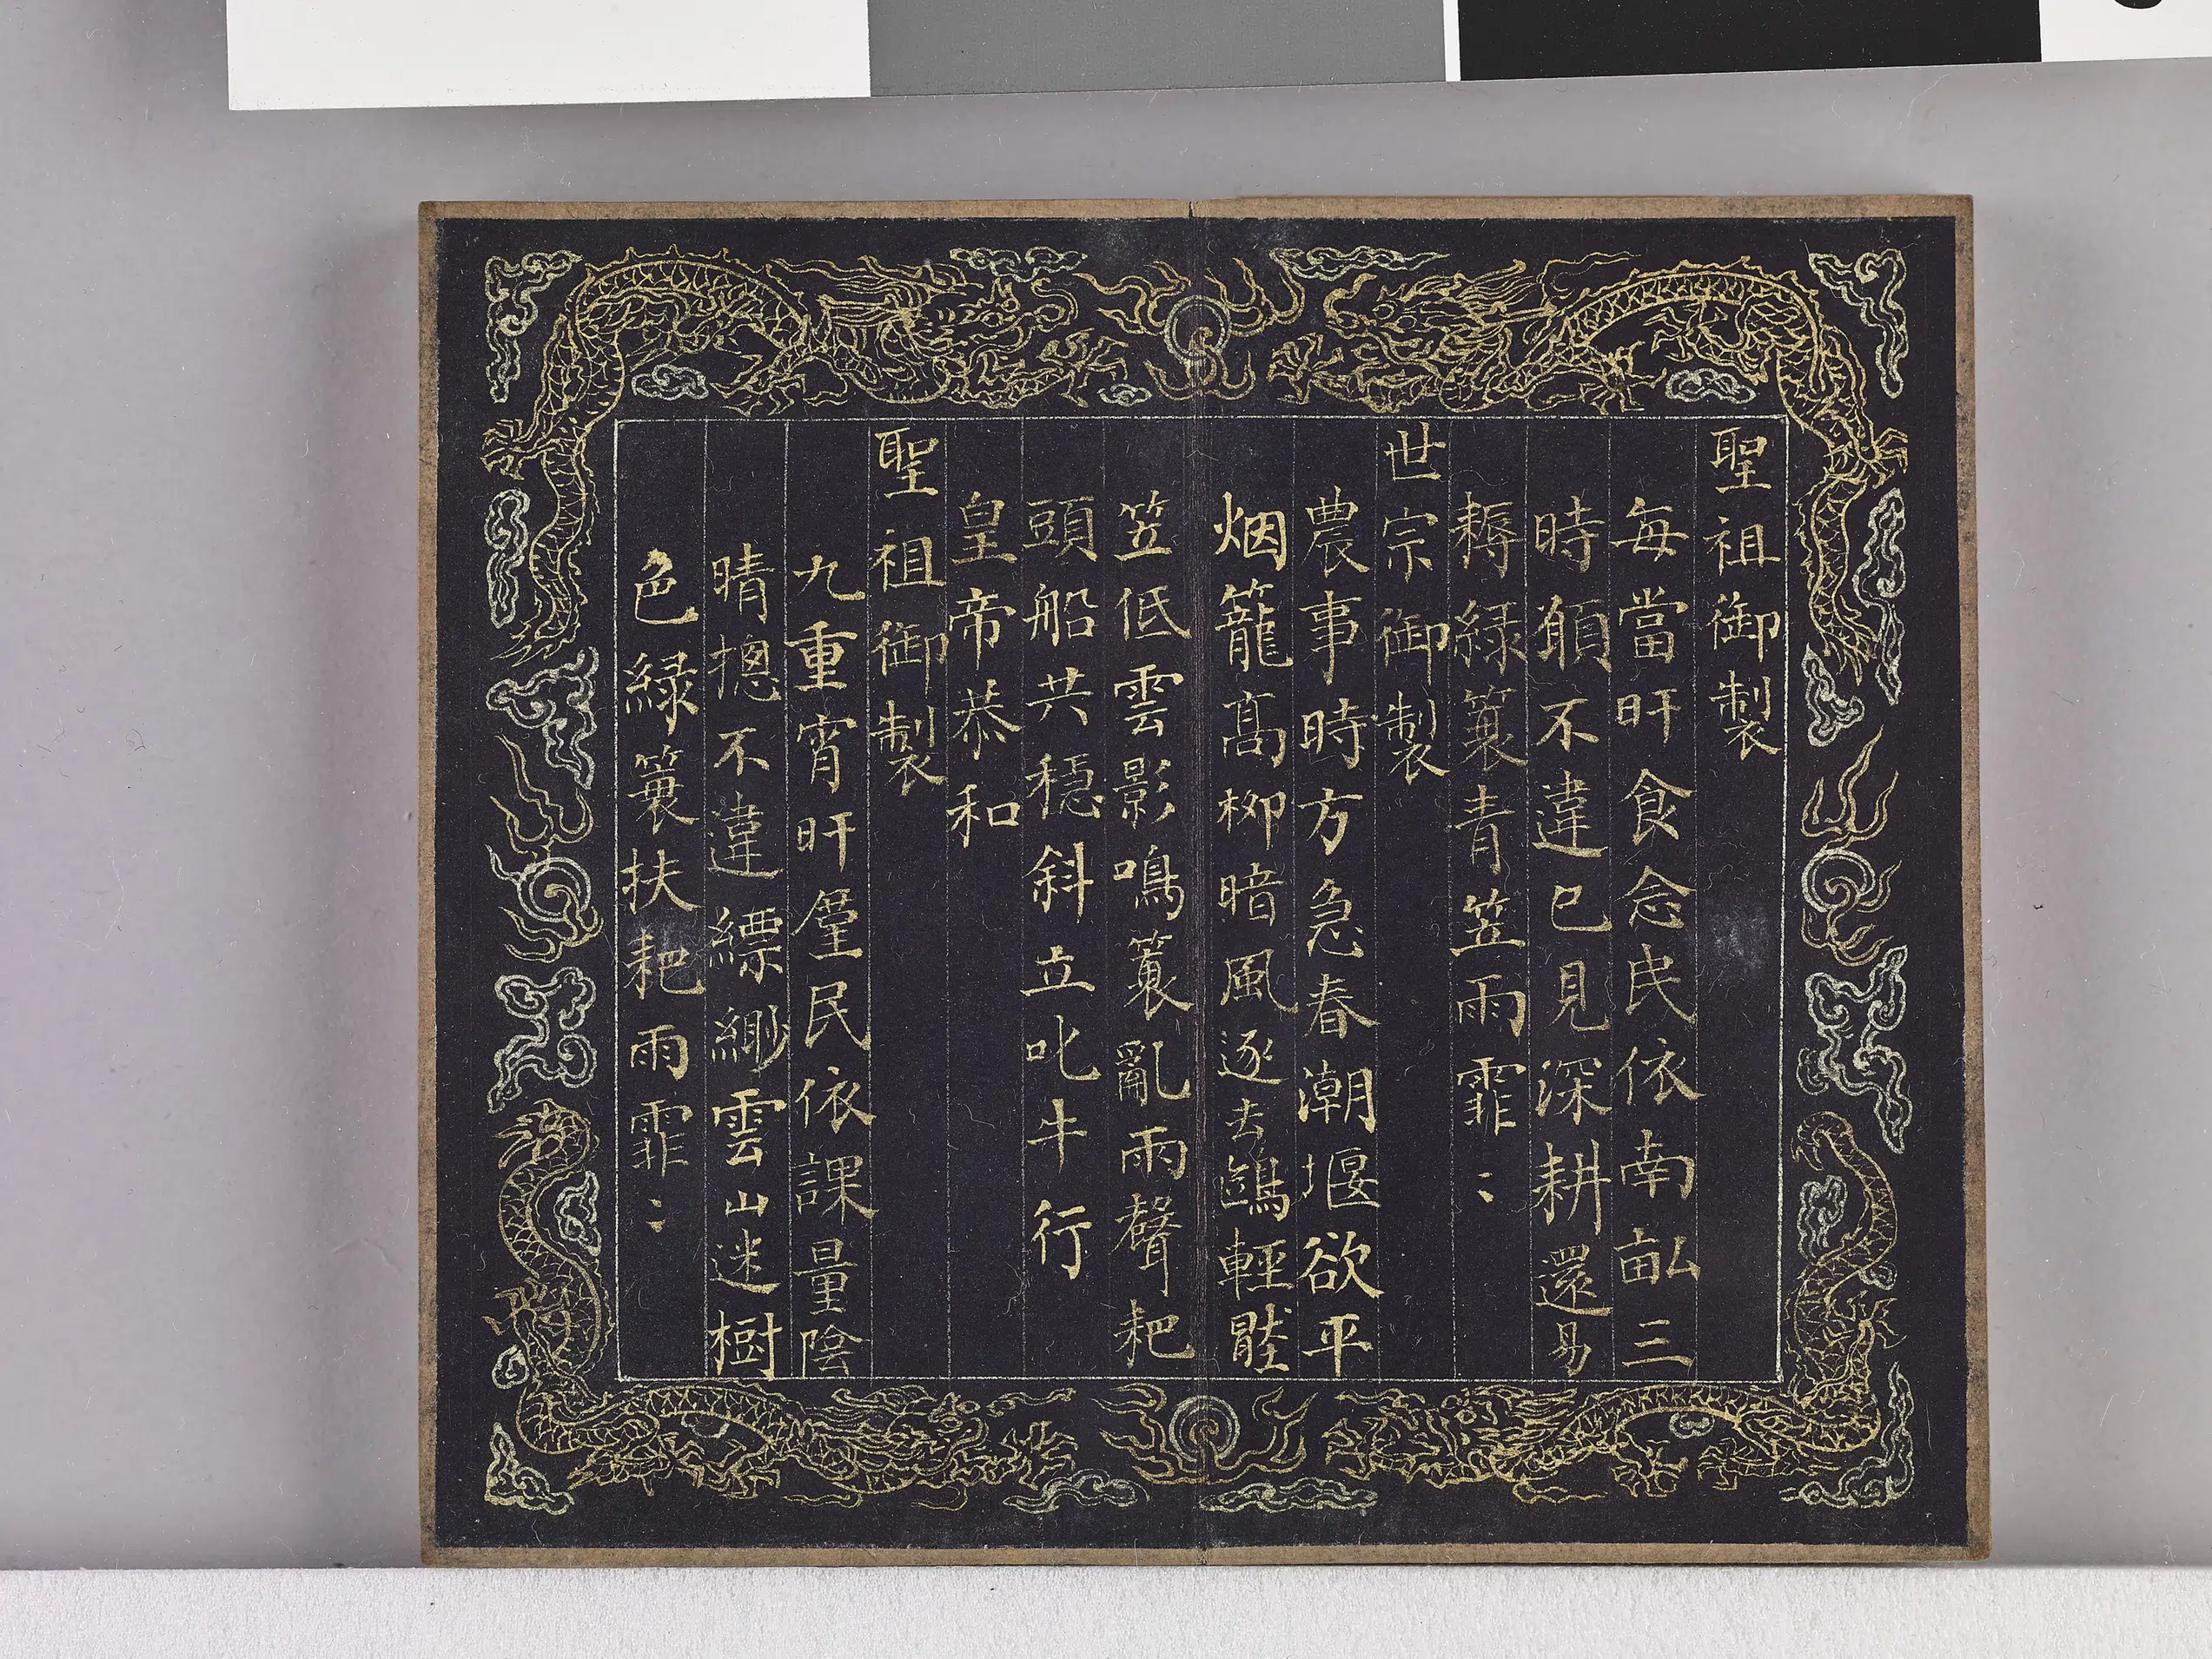 聖祖御製
每當旰食念民依南畝三
時願不違已見深耕還易
耨綠蓑青笠雨霏〻
世宗御製
農事時方急春潮堰欲平
烟籠高柳暗風逐去鷁輕
笠低雲影鳴蓑亂雨聲耙
頭船共穩斜立叱牛行
皇帝恭和
聖祖御製
九重宵旰廑民依課量陰
晴摠不違縹緲雲山迷樹
色綠蓑扶耙雨霏〻